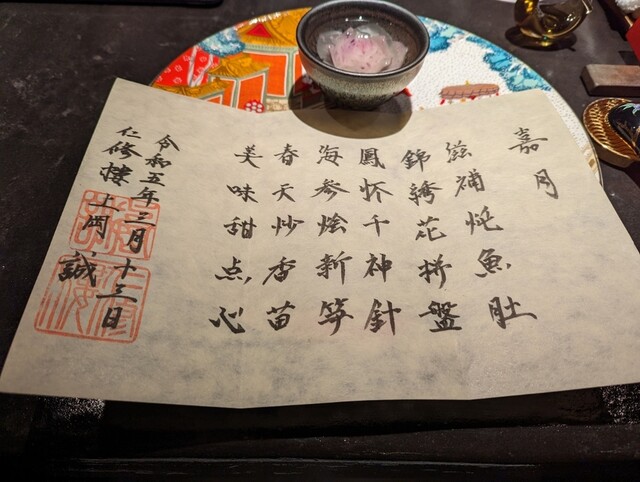 嘉月
滋補炖魚肚
錦綉花拼盤
鳳懷千神針
海参燴新筝
春天炒香苗
美味甜点心
令和五年三月十三日
仁修樓 上岡 誠